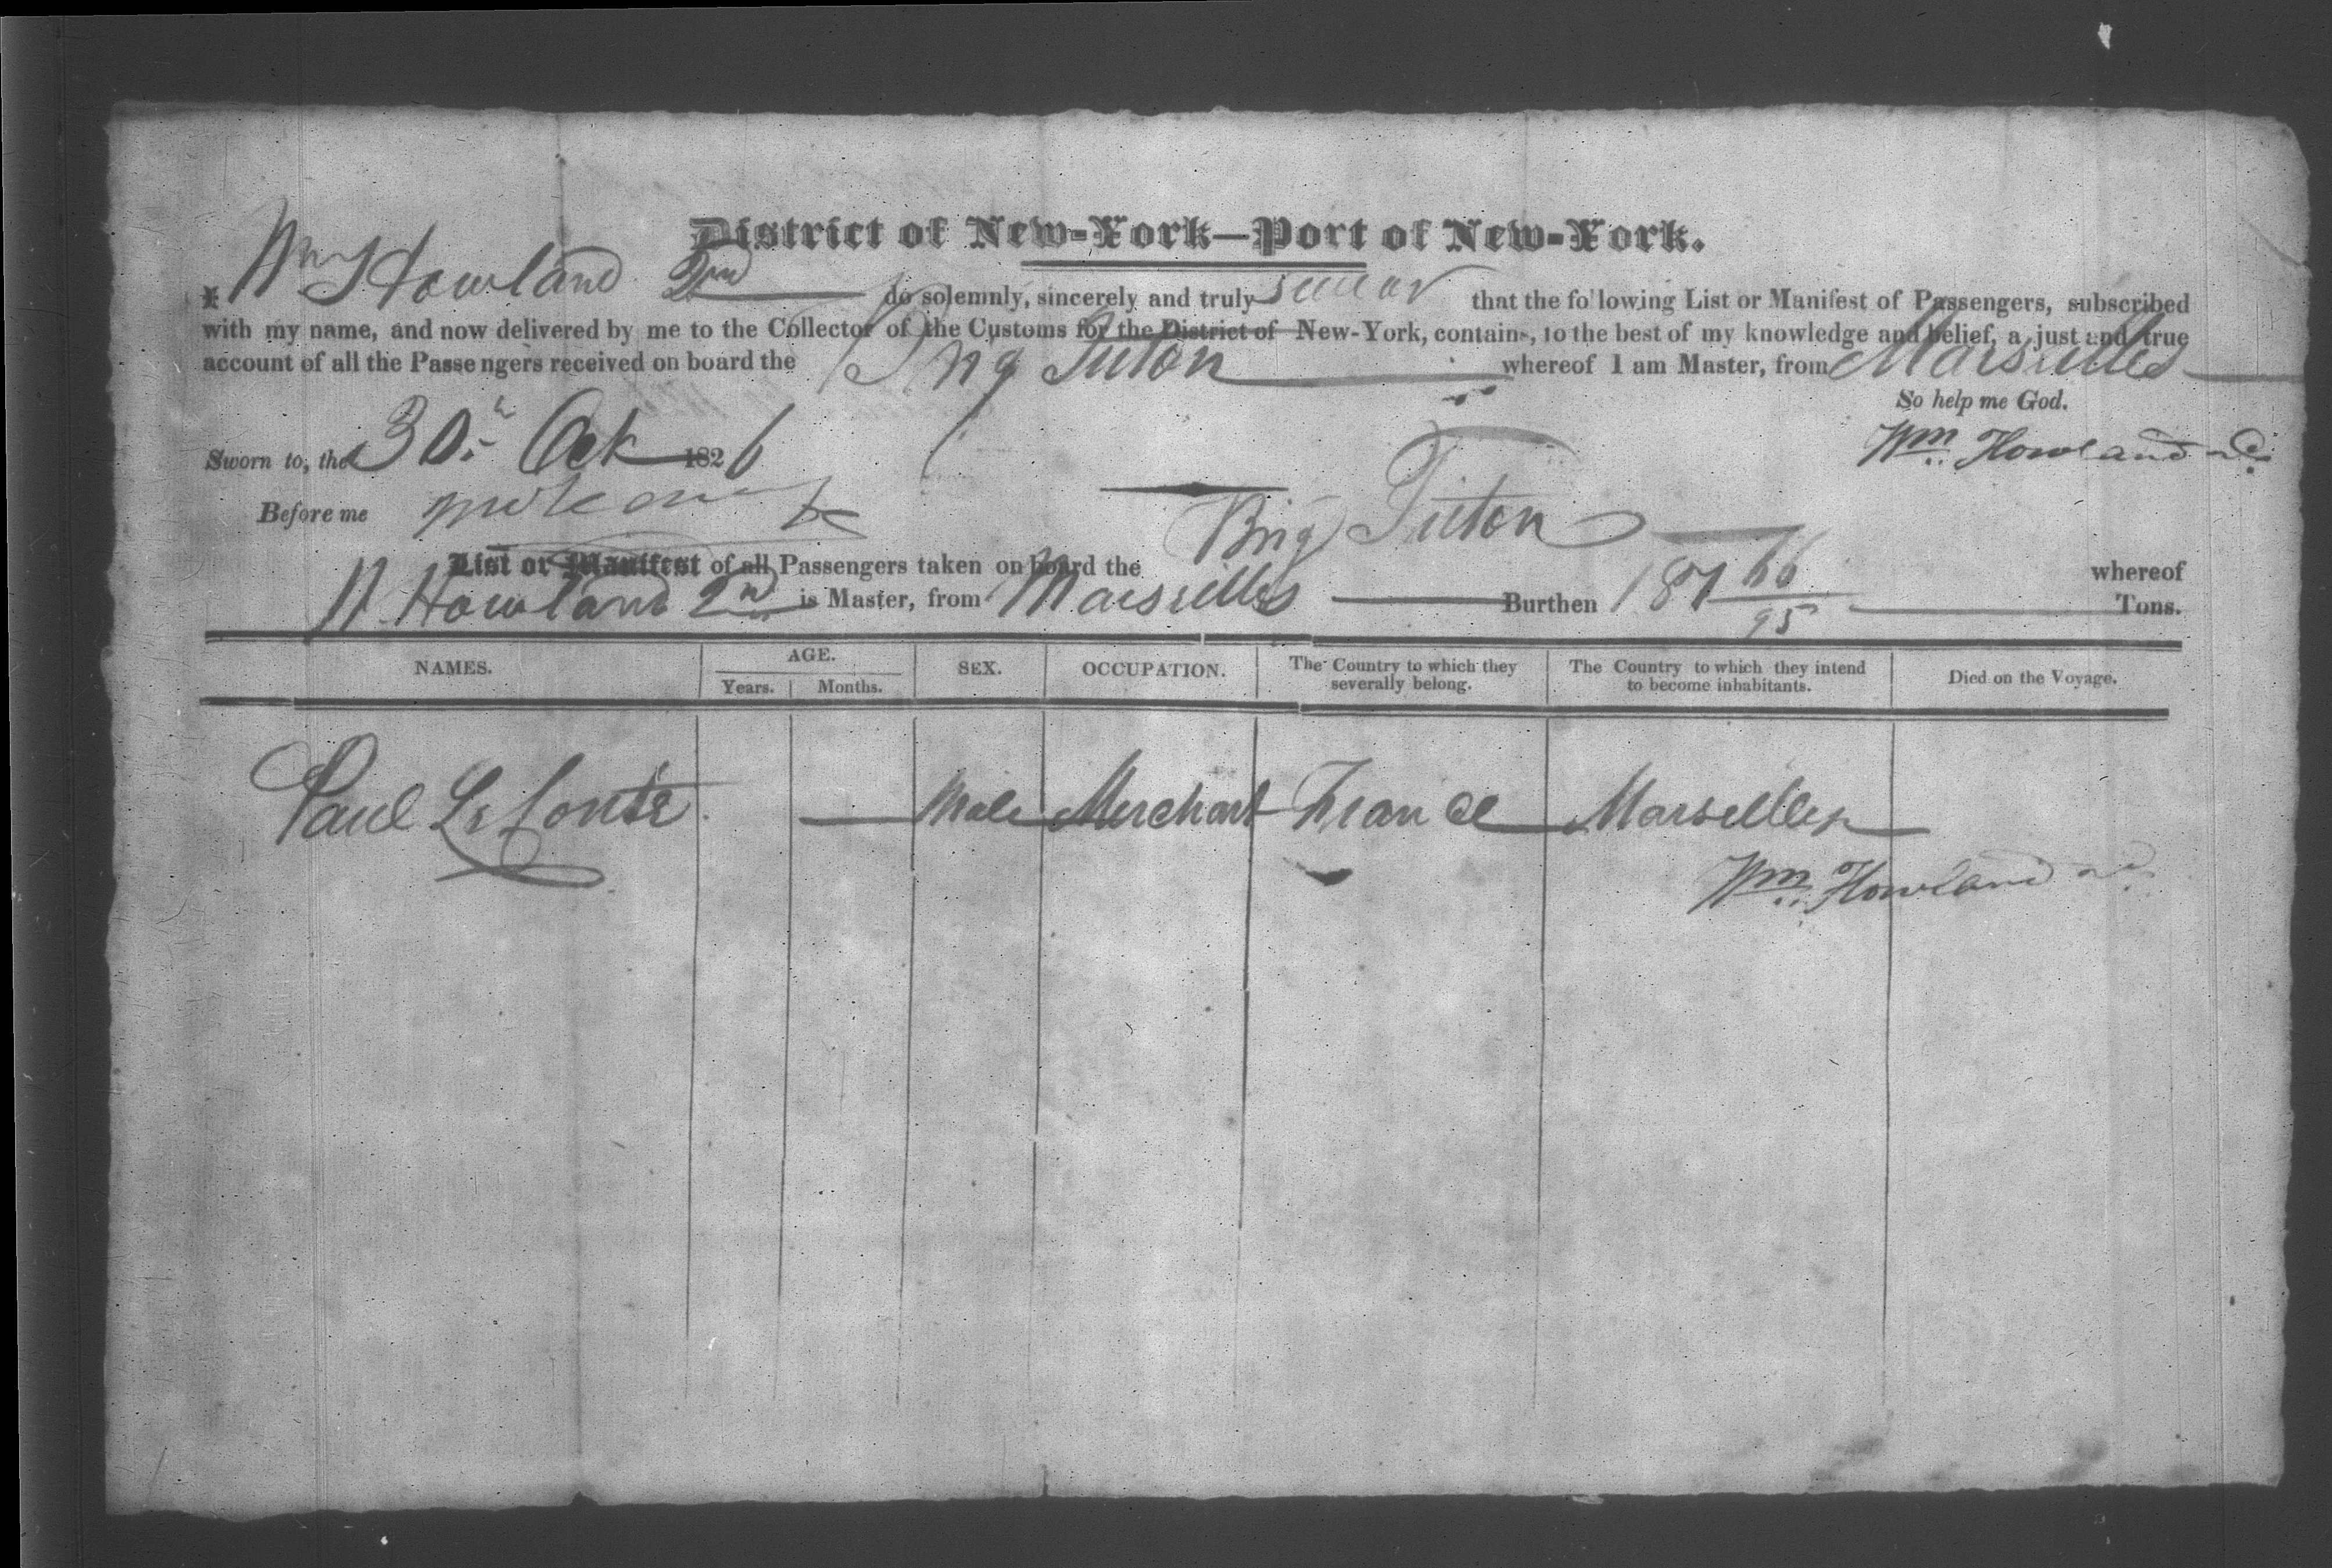 District of New-York—Port of New-York.
I Wm Howland 2nd do solemnly, sincerely and truly swear that the following List or Manifest of Passengers, subscribed
with my name, and now delivered by me to the Collector of the Customs for the District of New-York, contains, to the best of my knowledge and belief, a just and true
account of all the Passengers received on board the Brig whereof I am Master, from Marseilles
So help me God.
Sworn to, the 30th Oct 1826
Wm Howland 2d
Before me
List or Manifest of all Passengers taken on board the Brig whereof
W Howland 2nd is Master, from Marseilles Burthen 187 76/95 Tons.
NAMES. AGE. SEX. OCCUPATION. The Country to which they severally belong. The Country to which they intend to become inhabitants. Died on the Voyage.
Years. Months.
Paul LeConte Male Merchant France Marseilles
Wm Howland 2d